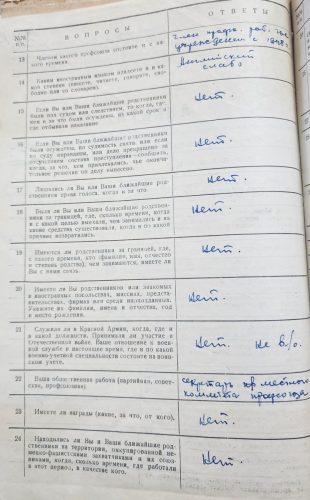 №№ п.п.
ВОПРОСЫ
ОТВЕТЫ
13
Членом какого профсоюза состоите и с какого времени.
член проф. раб. гос учреждений с 1948г.
14
Каким иностранным языком владеете и в какой степени (пишете, читаете, говорите, свободно или со словарем).
Английский слабо
15
Если Вы или Ваши ближайшие родственники были под судом или следствием, то когда, где и за что были осуждены, на какой срок и где отбывали наказание
Нет.
16
Если Вы или Ваши ближайшие родственники были осуждены, но судимость снята или если по суду оправданы, или дело прекращено за отсутствием состава преступления—сообщить, когда, за что, кем привлекались, чье окончательное решение по делу вынесено.
Нет.
17
Лишались ли Вы или Ваши ближайшие родственники права голоса, когда и за что
Нет.
18
Были ли Вы или Ваши ближайшие родственники за границей, где, сколько времени, когда и с какой целью выехали, чем занимались и на какие средства существовали, когда и по какой причине возвратились.
Нет.
19
Имеются ли родственники за границей, где, с какого времени, кто (фамилия, имя, отчество и степень родства), чем занимаются, имеете ли Вы с ними связь.
Нет.
20
Имеете ли Вы родственников или знакомых в иностранных посольствах, миссиях, представительствах, фирмах или среди иноподданных. Укажите их фамилии, имена и отчества, год и место рождения.
Нет.
21
Служили ли в Красной Армии, когда, где и в какой должности. Принимали ли участие в Отечественной войне. Ваше отношение к военной службе в настоящее время, где и по какой военно-учетной специальности состоите на воинском учете.
Нет. Не в/о.
22
Ваша общественная работа (партийная, советская, профсоюзная).
секретарь местного комитета профсоюза
23
Имеете ли награды (какие, за что, от кого).
Нет.
24
Находились ли Вы и Ваши ближайшие родственники на территории, оккупированной немецко-фашистскими захватчиками и их союзниками, когда, сколько времени, где работали в этот период, в качестве кого.
Нет.